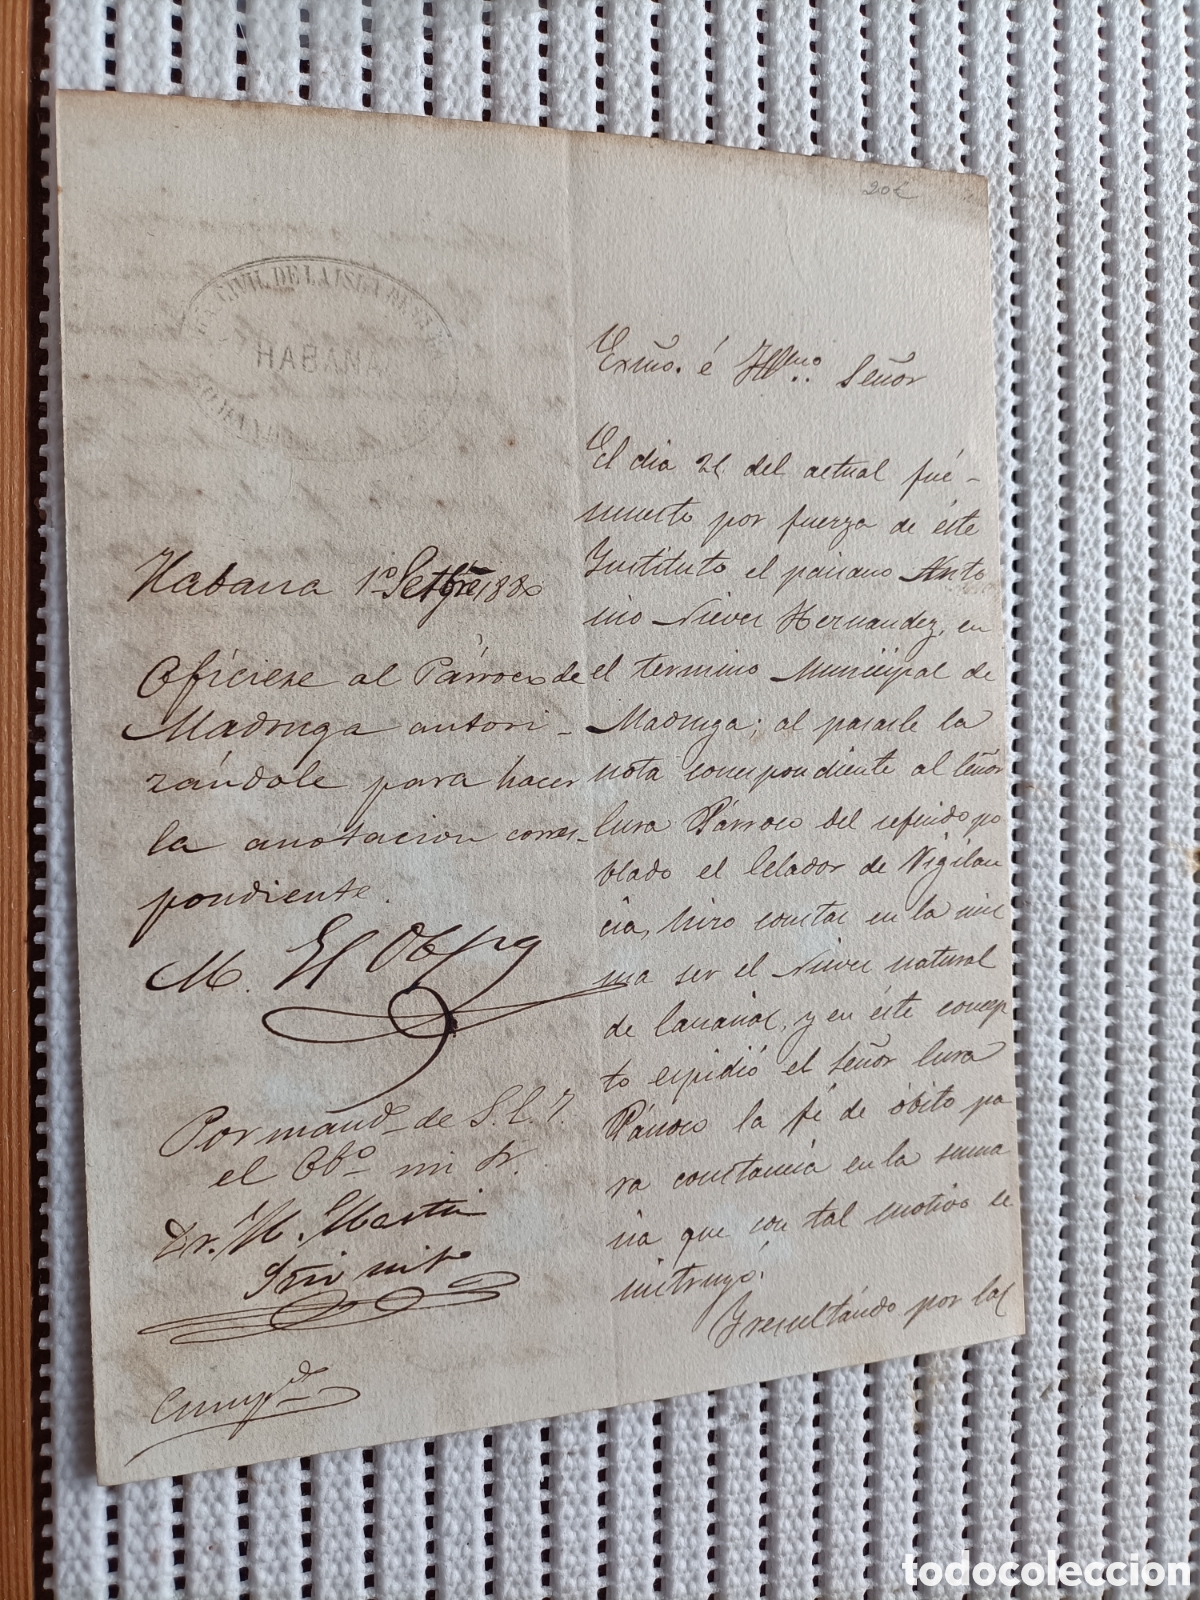 20€
CIVIL DE LA ISLA DE
HABANA
Habana 1º Setbre 1880
Ofíciese al Párroco de
Madruga autori-
zándole para hacer
la anotacion corres-
pondiente.
M. El Obpo
Por mandº de S.E.I.
el Obº mi Sr.
Dr. M. Martin
Srio
Cumpd
Exmo. é Illmo. Señor
El dia 21 del actual fué-
muerto por fuerza de éste
Instituto el paisano Anto
nio Nieves Hernandez, en
el termino Municipal de
Madruga; al pasarle la
nota correspondiente al Señor
Cura Párroco del referido po
blado el Celador de Vigilan
cia, hizo constar en la mis
ma ser el Nieves natural
de Canarias, y en éste concep
to espidió el Señor Cura
Párroco la fé de óbito pa
ra constancia en la suma
ria que con tal motivo se
instruyó.
Y resultando por las
todocoleccion